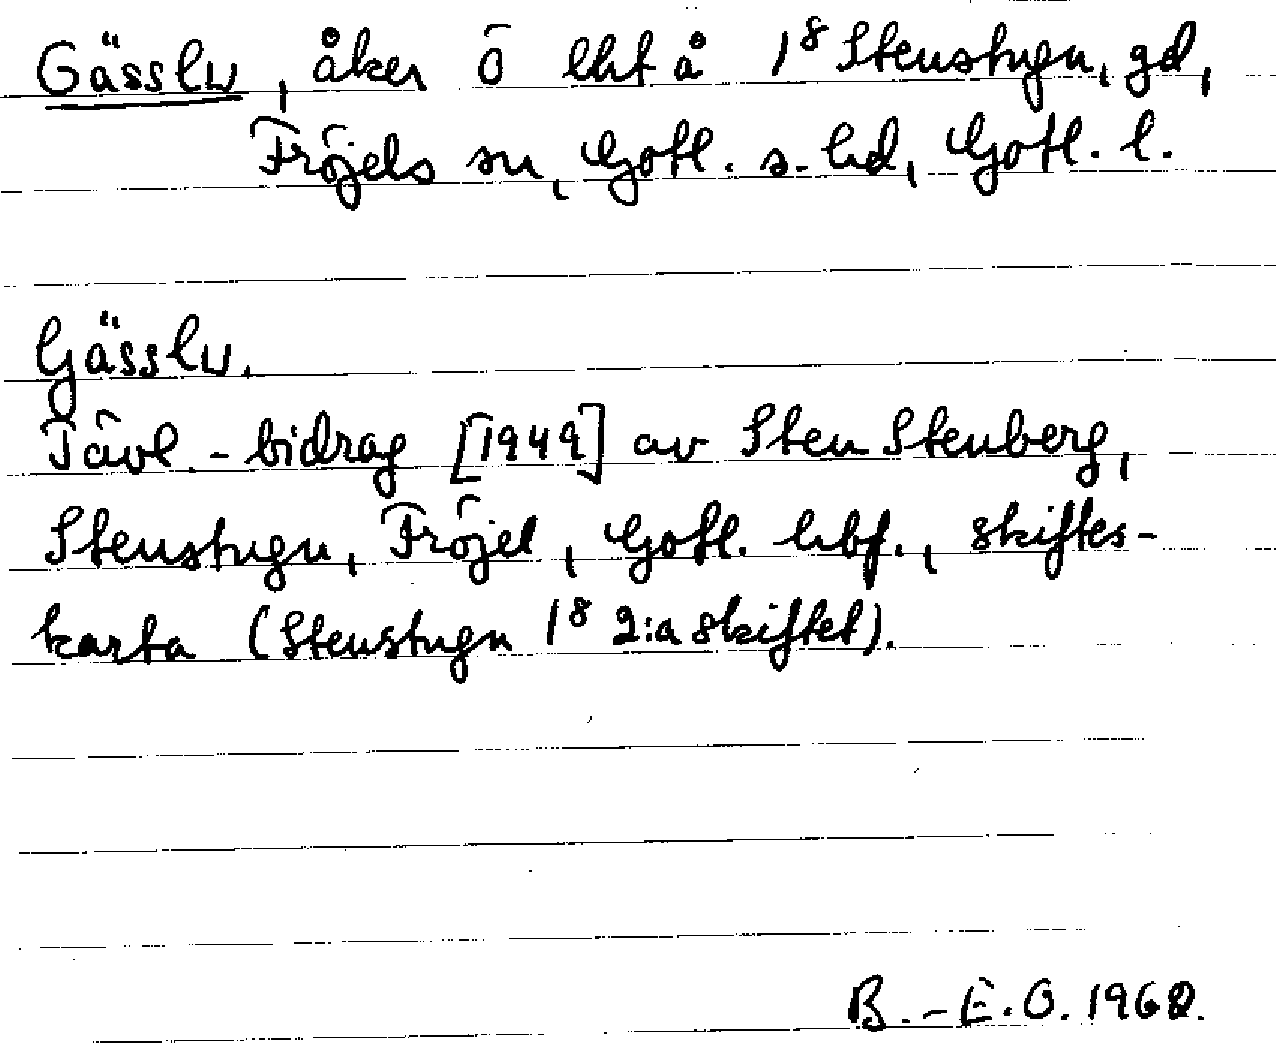 Gässlu, åker Ö lht å 1⁸ Stenstugu, gd,
Fröjels sn, Gotl. s. hd, Gotl. l.
Gässlu.
Tävl.-bidrag [1949] av Sten Stenberg,
Stenstugu, Fröjel, Gotl. hbf., skiftes-
karta (Stenstugu 1⁸ 2:a skiftet).
B.-E.O. 1962.